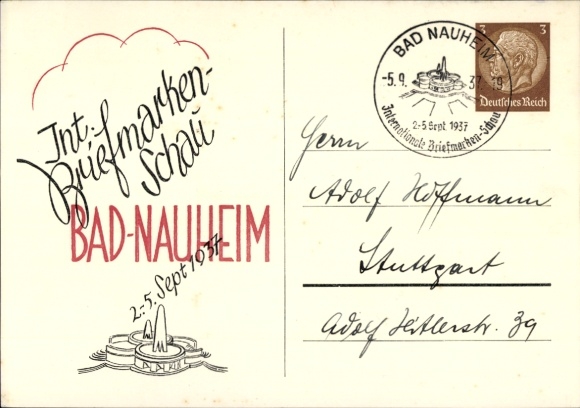 Int.
Briefmarken-
Schau
BAD-NAUHEIM
2.-5. Sept 1937
BAD NAUHEIM
-5.9. 37.-19
2.-5. Sept. 1937
Internationale Briefmarken-Schau
3 3
Deutsches Reich
Herrn
Adolf Hoffmann
Stuttgart
Adolf Hitlerstr. 39